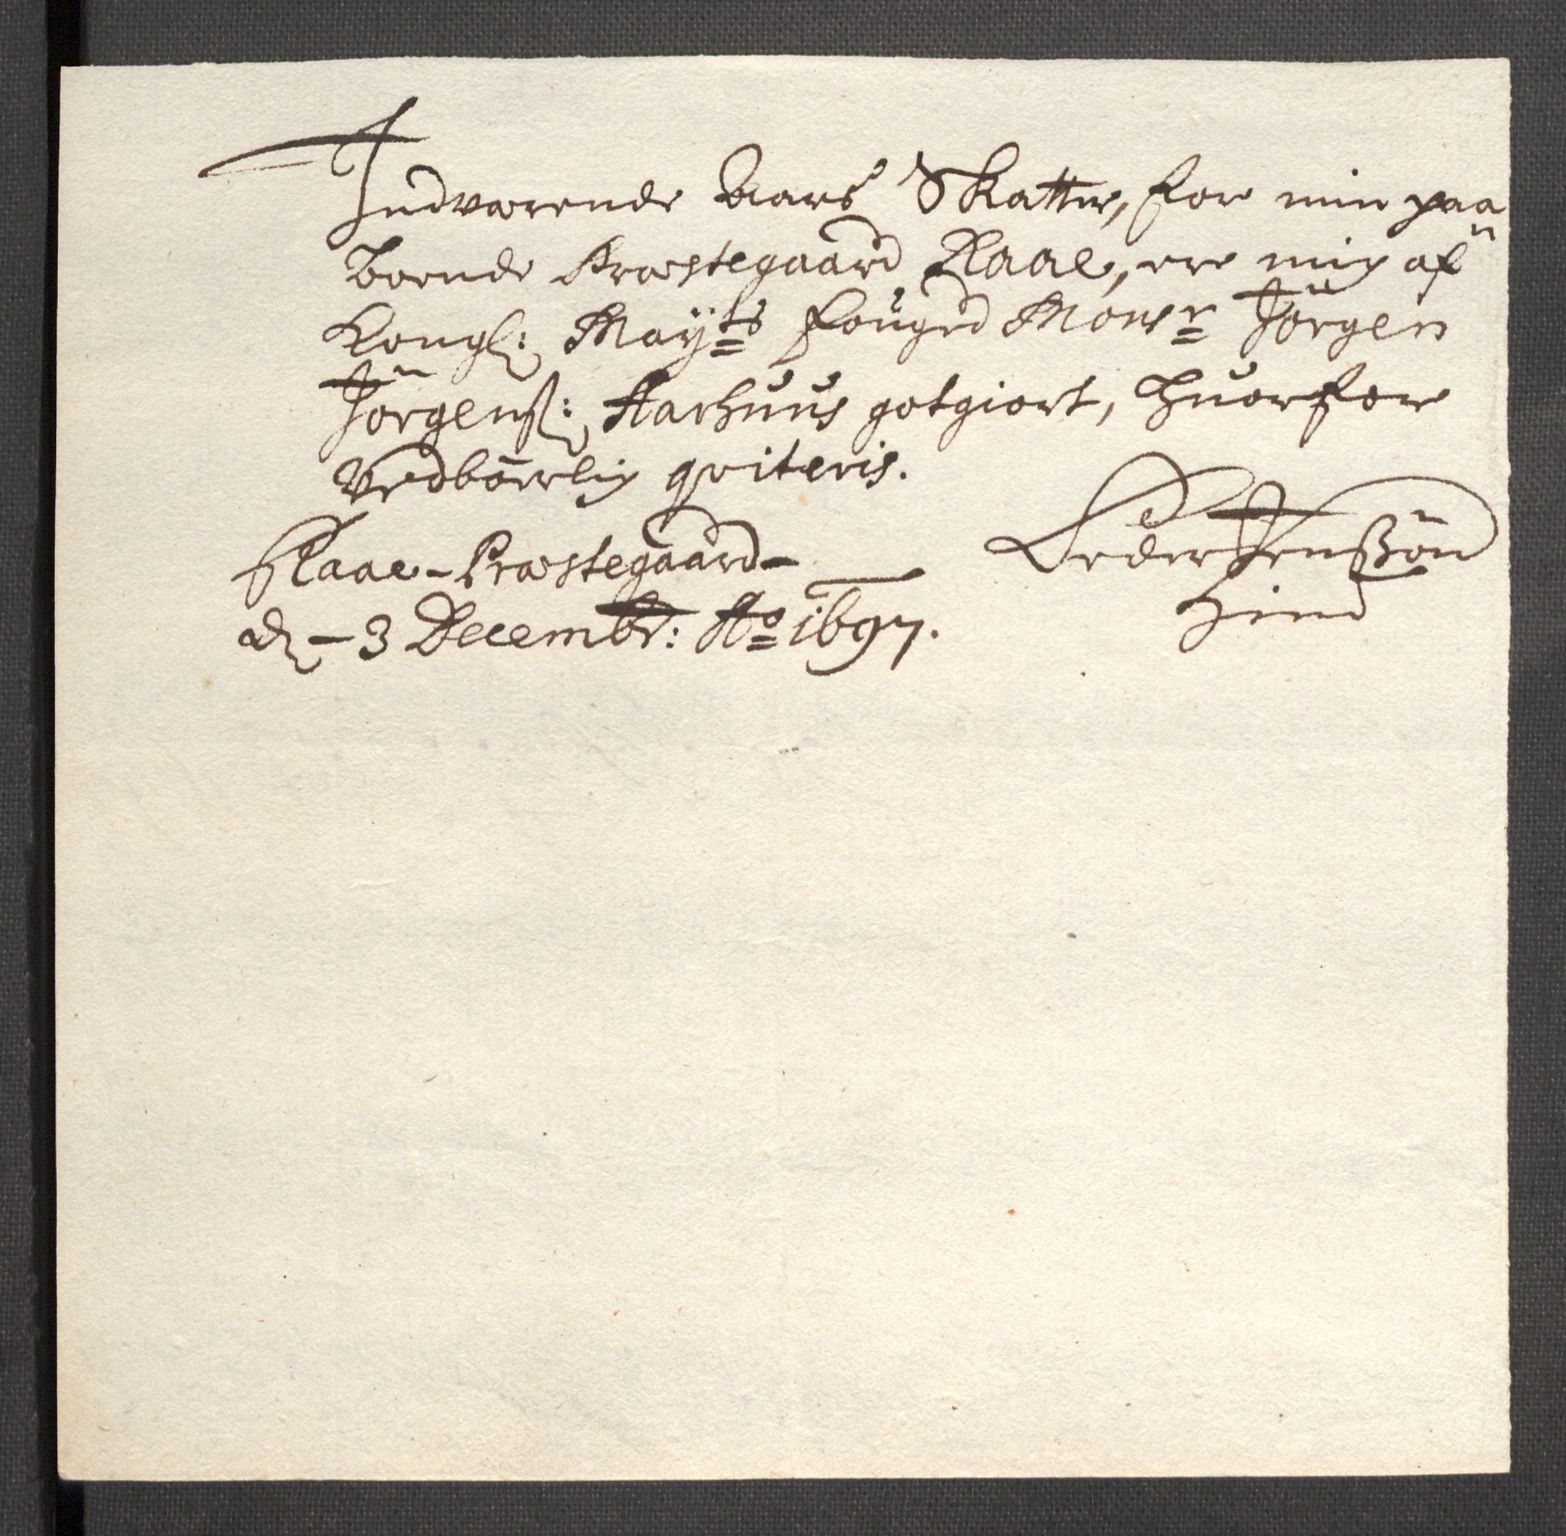 Indværende Aars Skatter, for min paa
boende Præstegaard Raae, ere mig af
Kongl: Mayts fougd Monsr Jörgen
Jörgenß: Aarhuus gotgiort, huorfor
Vedbörlig qviteris.
Raae-Præstegaard
d. - 3 Decembr: Ao 1697.
Peder Jenßön
Hind